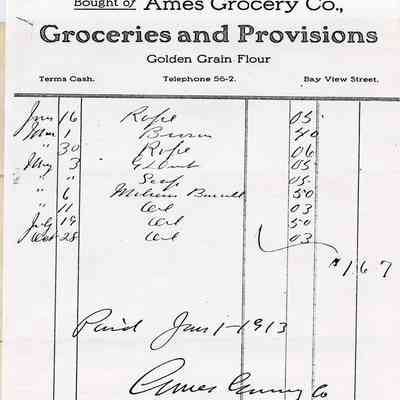 Bought of Ames Grocery Co.,
Groceries and Provisions
Golden Grain Flour
Terms Cash. Telephone 56-2. Bay View Street.
16 Rope 05
1 Broom 40
" 30 Rope 06
May 3 05
" " Soap 05
" 6 50
" 11 03
July 19 50
28 03
$1.67
Paid Jan 1-1913
Ames Grocery Co